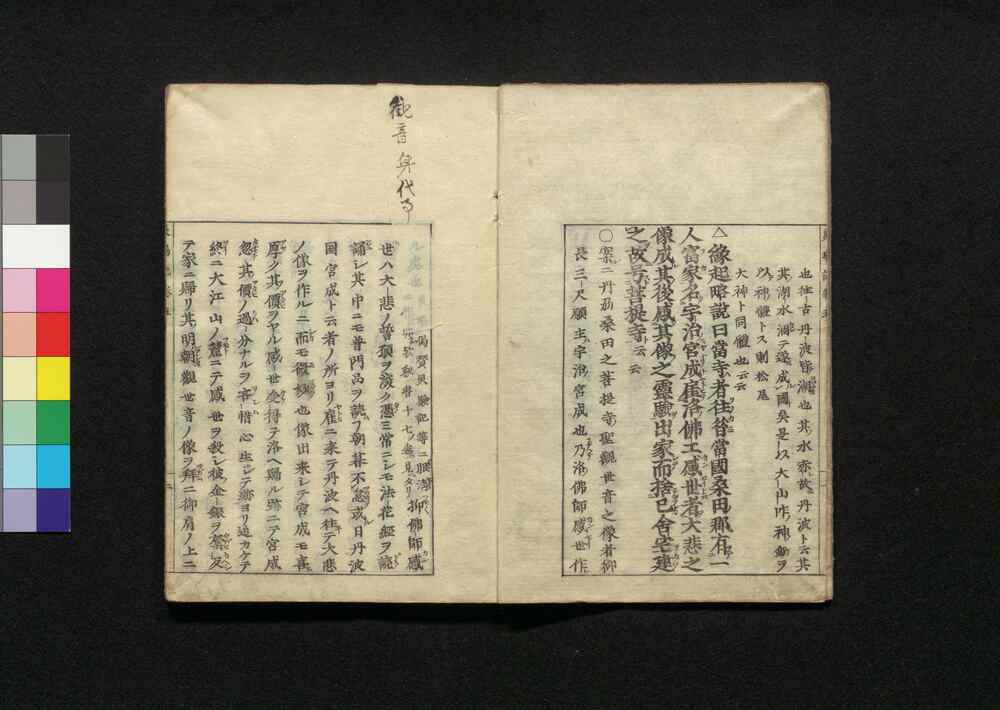 也往古丹波皆湖也其水赤故丹波ト云其
其湖水涸テ遂成國矣是以大山咋神鋤ヲ
以神體トス則松尾
大神ト同體也云云
△緣起略說曰當寺者往昔當國桑田郡有一
人富家名宇治宮成雇洛佛工感世者大悲之
像成其後感其像之靈驗出家而捨已舍宅建
之故号菩提寺云云
○案ニ丹劦桑田之菩提寺聖觀世音之像者御
長三尺願主宇治宮成也乃洛佛師感世作
觀音身代り
偈贊民驗記等ニ
歌秋昔十七
抑佛師感
世八大悲ノ誓頭ヲ深ク憑ミ常ニシモ法花經ヲ讀
誦シ其中ニモ普門品ヲ讀フ朝暮不怠或日丹波
国宮成ト云者ノ所ヨリ雇ニ来テ丹波ヘ往テ大悲
ノ像ヲ作ルニ而モ微妙也像出来レテ宮成モ喜
厚ク其價ヲヤル感世受得テ洛ヘ歸ル跡ニテ宮成
忽其價ノ過分ナルヲ吝惜心生レテ跡ヨリ追カケテ
終ニ大江山ノ麓ニテ感世ヲ殺シ彼金銀ヲ奪反
テ家ニ歸リ其明朝觀世音ノ像ヲ拜ニ御肩ノ上ニ